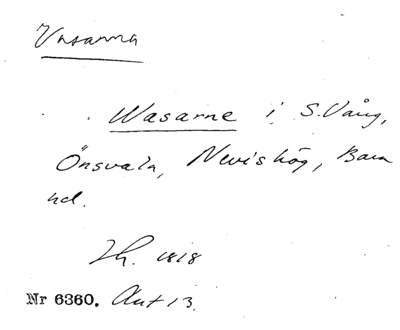 Vasarna
Wasarne i S. Vång,
Önsvala, Nevishög, Bara
hd.
Th. 1818
Nr 6360. Ant 13.